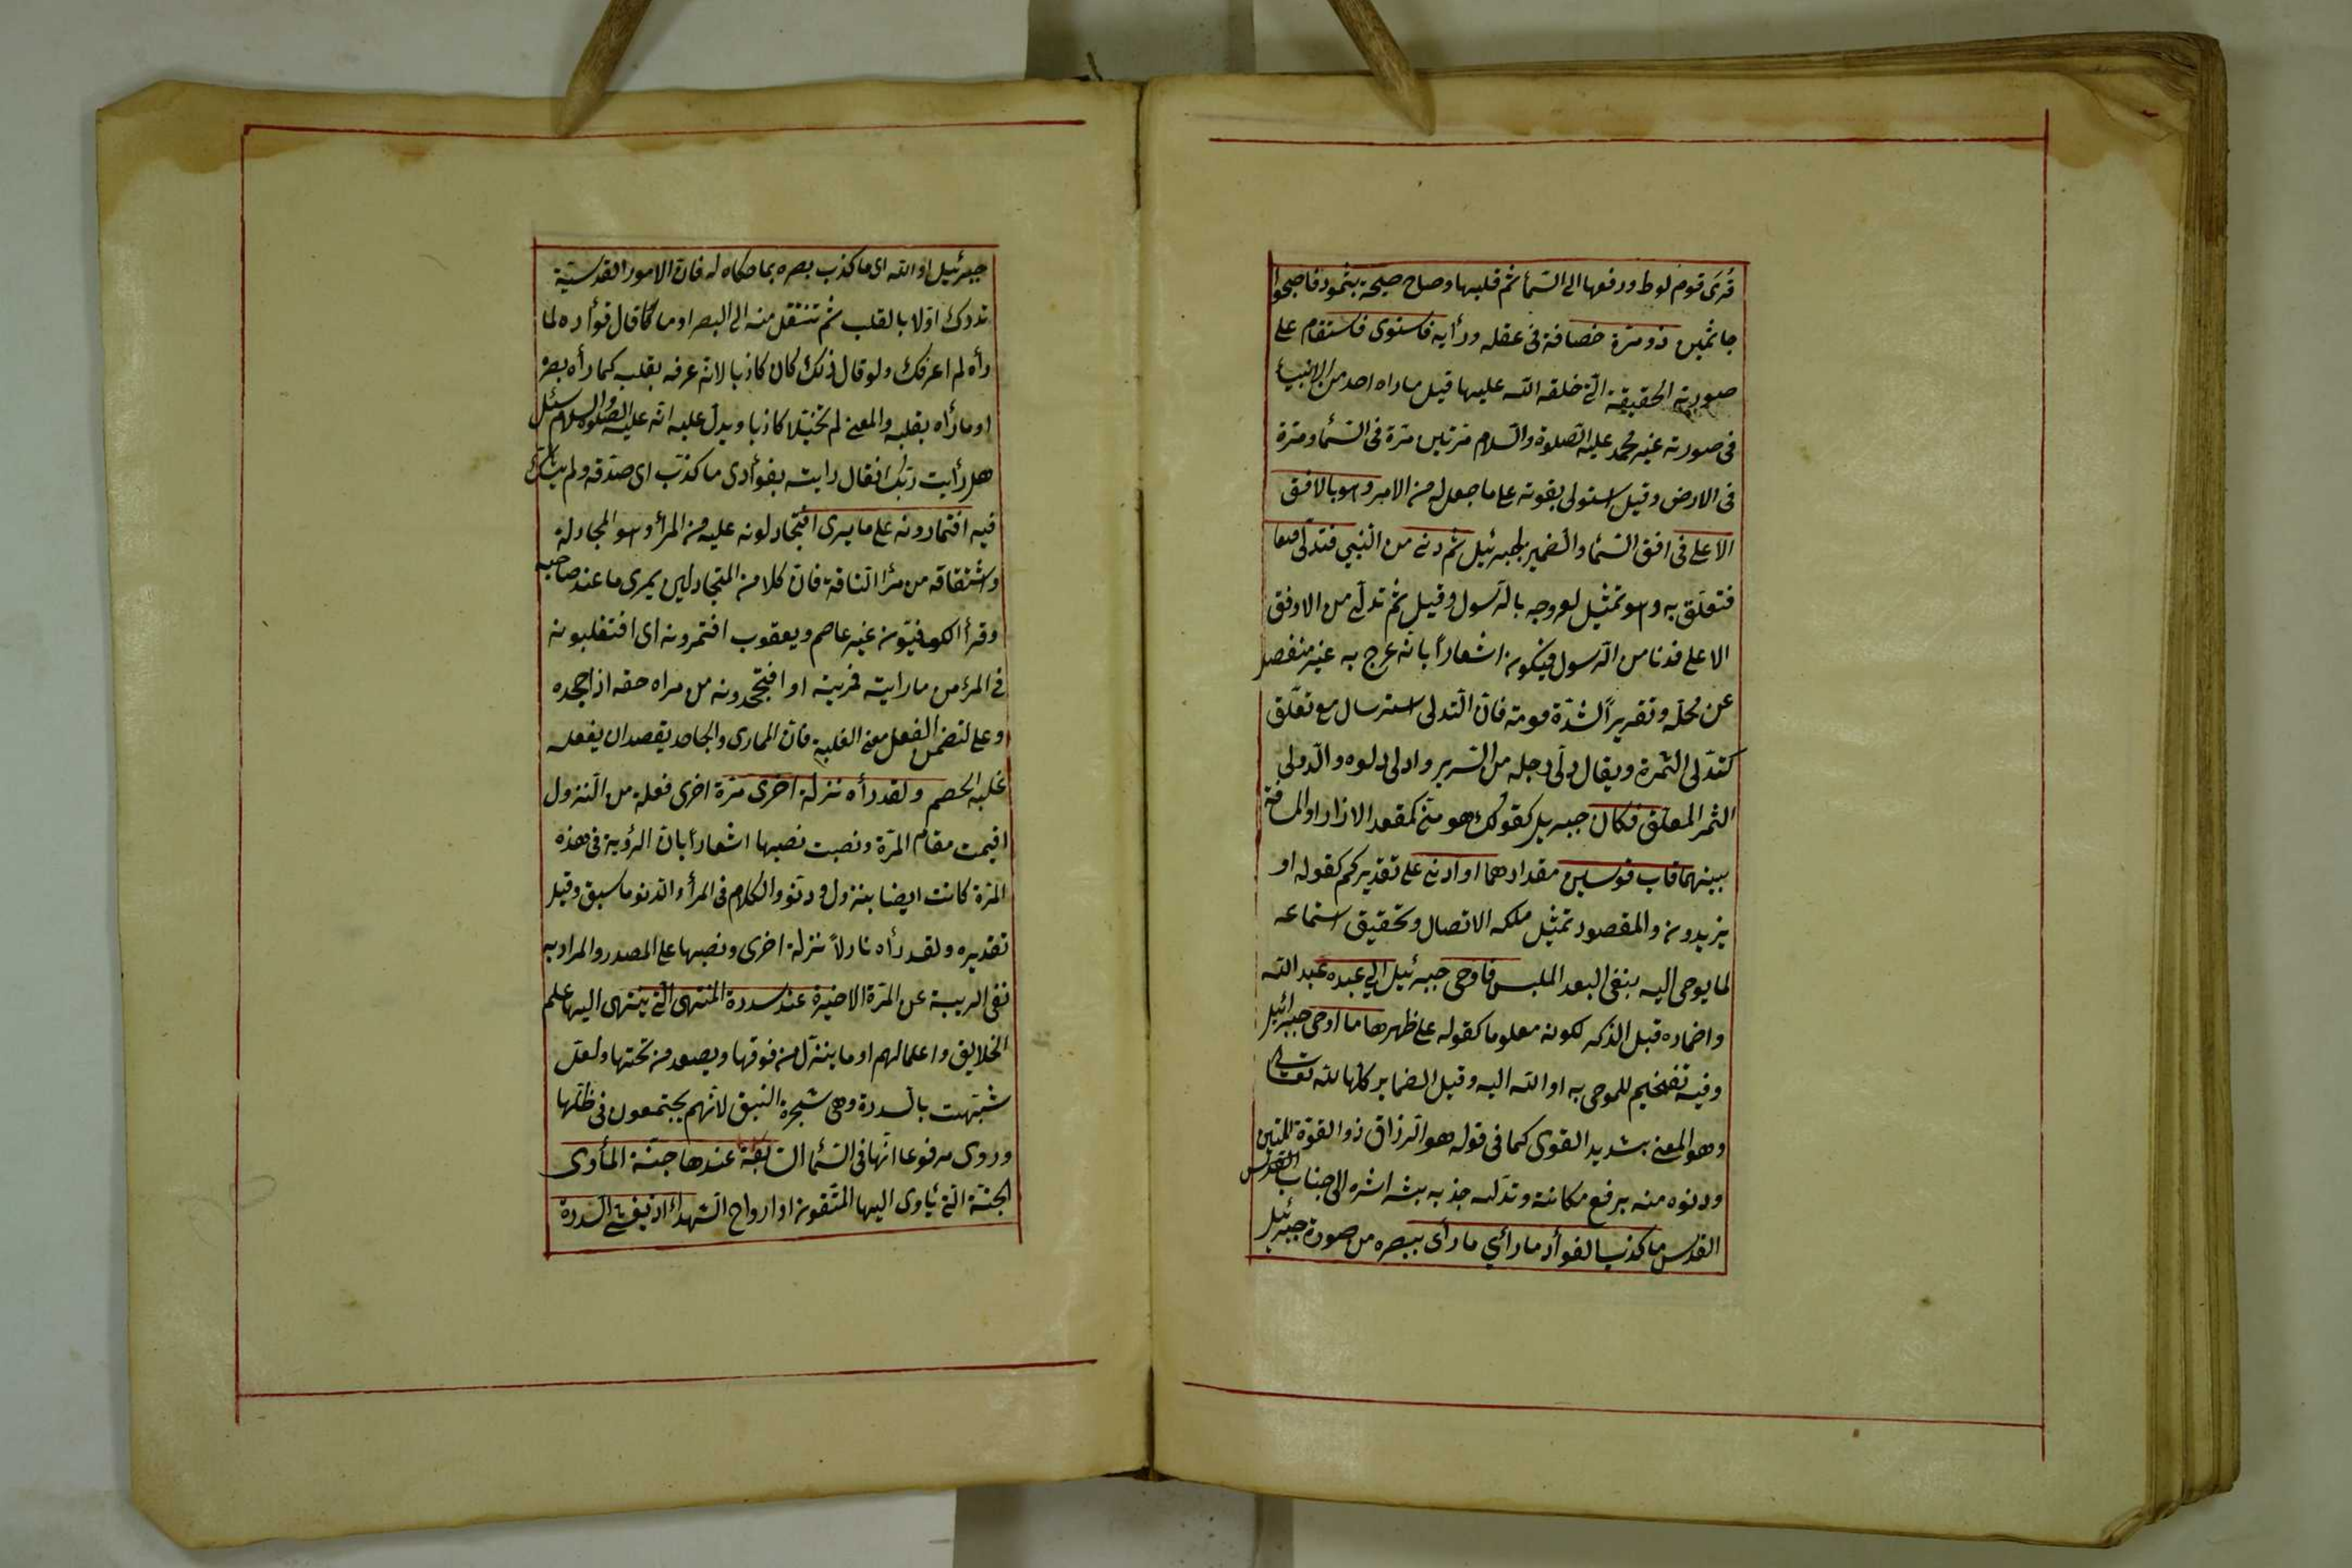 قرى قوم لوط ورفعها الى السّمأ ثم قلبها وصاح صيحة بثمود فاصبحوا
جاثمين ذو مرة حصافة فى عقله ورأيه فاستوى فاستقام على
صورته الحقيقة الّتى خلقه الله عليها قيل ماراه احد من الانبيأ
فى صورته غير محمد عليه الصّلوة والسّلام مرتين مرّة فى السّمأ ومرّة
فى الارض وقيل استولى بقوته على ما جعل له من الامر وهو بالافق
الاعلى فى افق السّمأ والضمير لجبرئيل ثم دنى من النّبي فتدلّى
فتعلّق به وهو تمثيل لعروجه بالرّسول وقيل ثم تدلّى من الافق
الاعلى فدنا من الرّسول فيكون اشعاراً بانّه عرج به غير منفصل
عن محلّه وتقريراً لشدّة قوته فان التّدلى استرسال مع تعلّق
كتدّلى الثمرة ويقال دلّى رجله من السّرير وادلى دلوه والدّوالى
الثمر المعلّق فكان جبريل كقولك هو منّى كمقعد الازار او المسافة
بينهما قاب قوسين مقدارهما او ادنى على تقديركم كقوله او
يزيدون والمقصود تمثيل ملكة الاتصال وتحقيق استماعه
لما يوحى اليه بنفى البعد الملبس فاوحى جبرئيل الي عبده عبد الله
واضماره قبل الذكر لكونه معلوما كقوله على ظهرها ما اوحى جبرائيل
وفيه تفخيم للموحى به او الله اليه وقيل الضماير كلّها لله تعالى
وهو المعنى بشديد القوى كما فى قوله هو الرزاق ذو القوّة المتين
ودنوه منه برفع مكانته وتدليه جذبه بشراشره الى جناب القدس
القدس ما كذب الفوأد ما رأي ما رأى ببصره من صورة جبرئيل
جبرئيل او الله اى ما كذب بصره بما حكاه له فان الامور القدسيّة
تدرك اوّلا بالقلب ثم تنتقل منه الى البصر او ما قال فوأده لما
رأه لم اعرفك ولو قال ذلك كان كاذبا لانه عرفه بقلبه كما رأه بصره
او ما رأه بقلبه والمعنى لم تخيّلا كاذبا ويدل عليه انّه عليه الصّلوة والسلام سئل
هل رأيت ربّك فقال رايته بفوأدى ما كذّب اى صدّقه ولم يشك
فيه افتمارونه على ما يرى افتجادلونه عليه من المرأ وهو المجادلة
واشتقاقه من مرأ النّاقة فان كلا من المتجادلين يمرى ما عند صاحبه
وقرأ الكوفيّون غير عاصم ويعقوب افتمرونه اى افتغلبونه
فى المرء من ماريته فمريته او افتجحدونه من مراه حقه اذا جحده
وعلى لتضمن الفعل معنى الغلبة فان الممارى والجاحد يقصدان بفعله
غلبة الخصم ولقد رأه نزلة اخرى مرّة اخرى فعلة من النّزول
اقيمت مقام المرّة ونصبت نصبها اشعاراً بان الرؤية فى هذه
المرّة كانت ايضا بنزول ودنو والكلام فى المرأ والدّنو ما سبق وقيل
تقديره ولقد رأه نازلاً نزلة اخرى ونصبها على المصدر والمراد به
نفى الريبة عن المرّة الاخيرة عند سدرة المنتهى الّتى ينتهى اليها علم
الخلايق واعمالهم او ما ينزل من فوقها ويصعد من تحتها ولعل
شبّهت بالسّدرة وهى شجرة النبق لانّهم يجتمعون فى ظلّها
وروى مرفوعا انّها فى السّمأ السّابعة عندها جنّة المأوى
الجنّة الّتى يأوى اليها المتّقون او ارواح الشّهدأ اذ يغشى السدرة